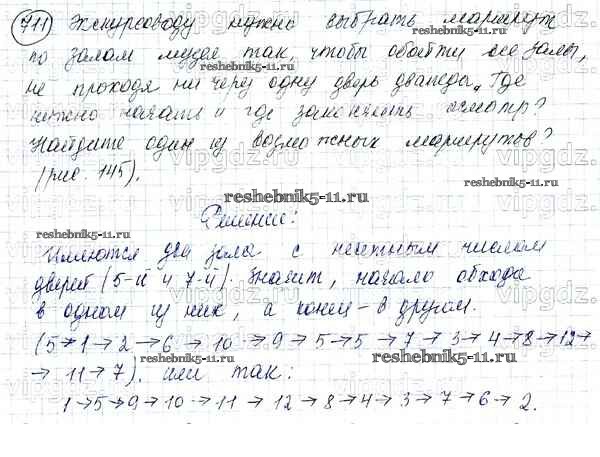 711 Экскурсоводу нужно выбрать маршрут
по залам музея так, чтобы обойти все залы,
не проходя ни через одну дверь дважды. Где
нужно начать и где закончить осмотр?
Найдите один из возможных маршрутов?
(рис. 145).
Решение:
Имеются два зала с нечетным числом
дверей (5-й и 7-й). Значит, начало обхода
в одном из них, а конец - в другом.
(5→1→2→6→10→9→5→5→7→3→4→8→12→
→11→7). или так:
1→5→9→10→11→12→8→4→3→7→6→2.
reshebnik5-11.ru
reshebnik5-11.ru
reshebnik5-11.ru
reshebnik5-11.ru
reshebnik5-11.ru
reshebnik5-11.ru
vipgdz.
vipgdz.